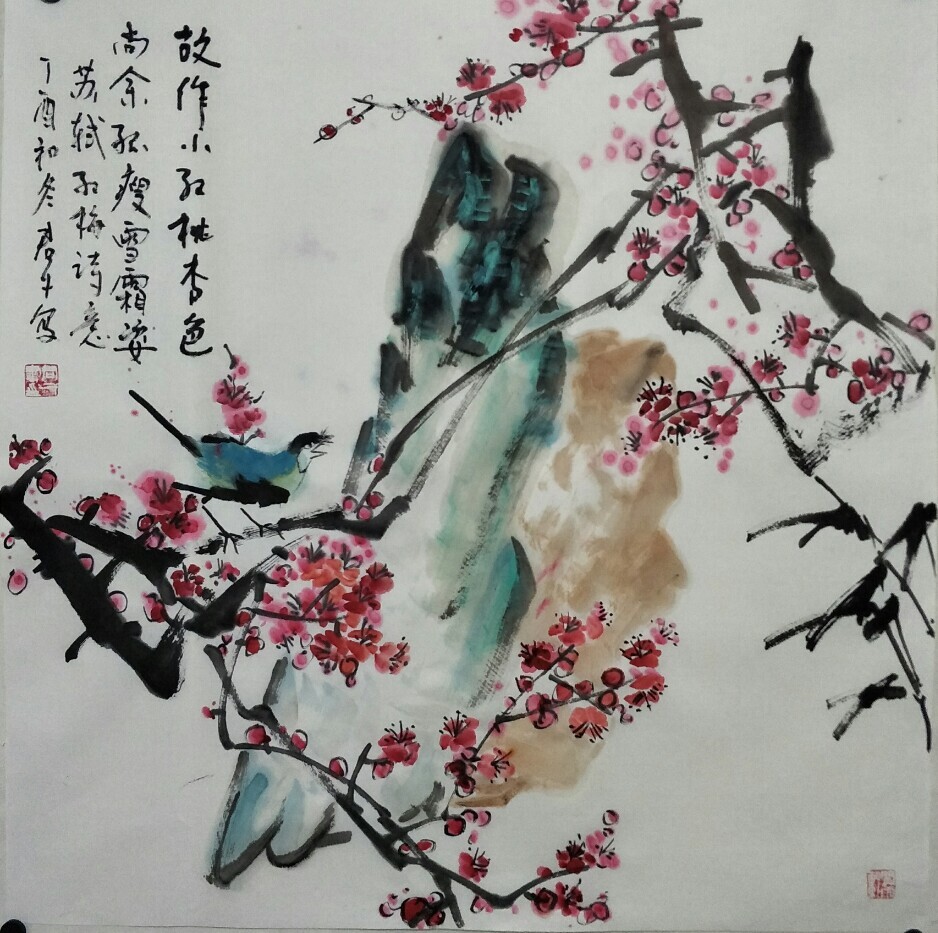 故作小红桃杏色
尚余孤瘦雪霜姿
苏轼红梅诗意
丁酉初冬春牛写